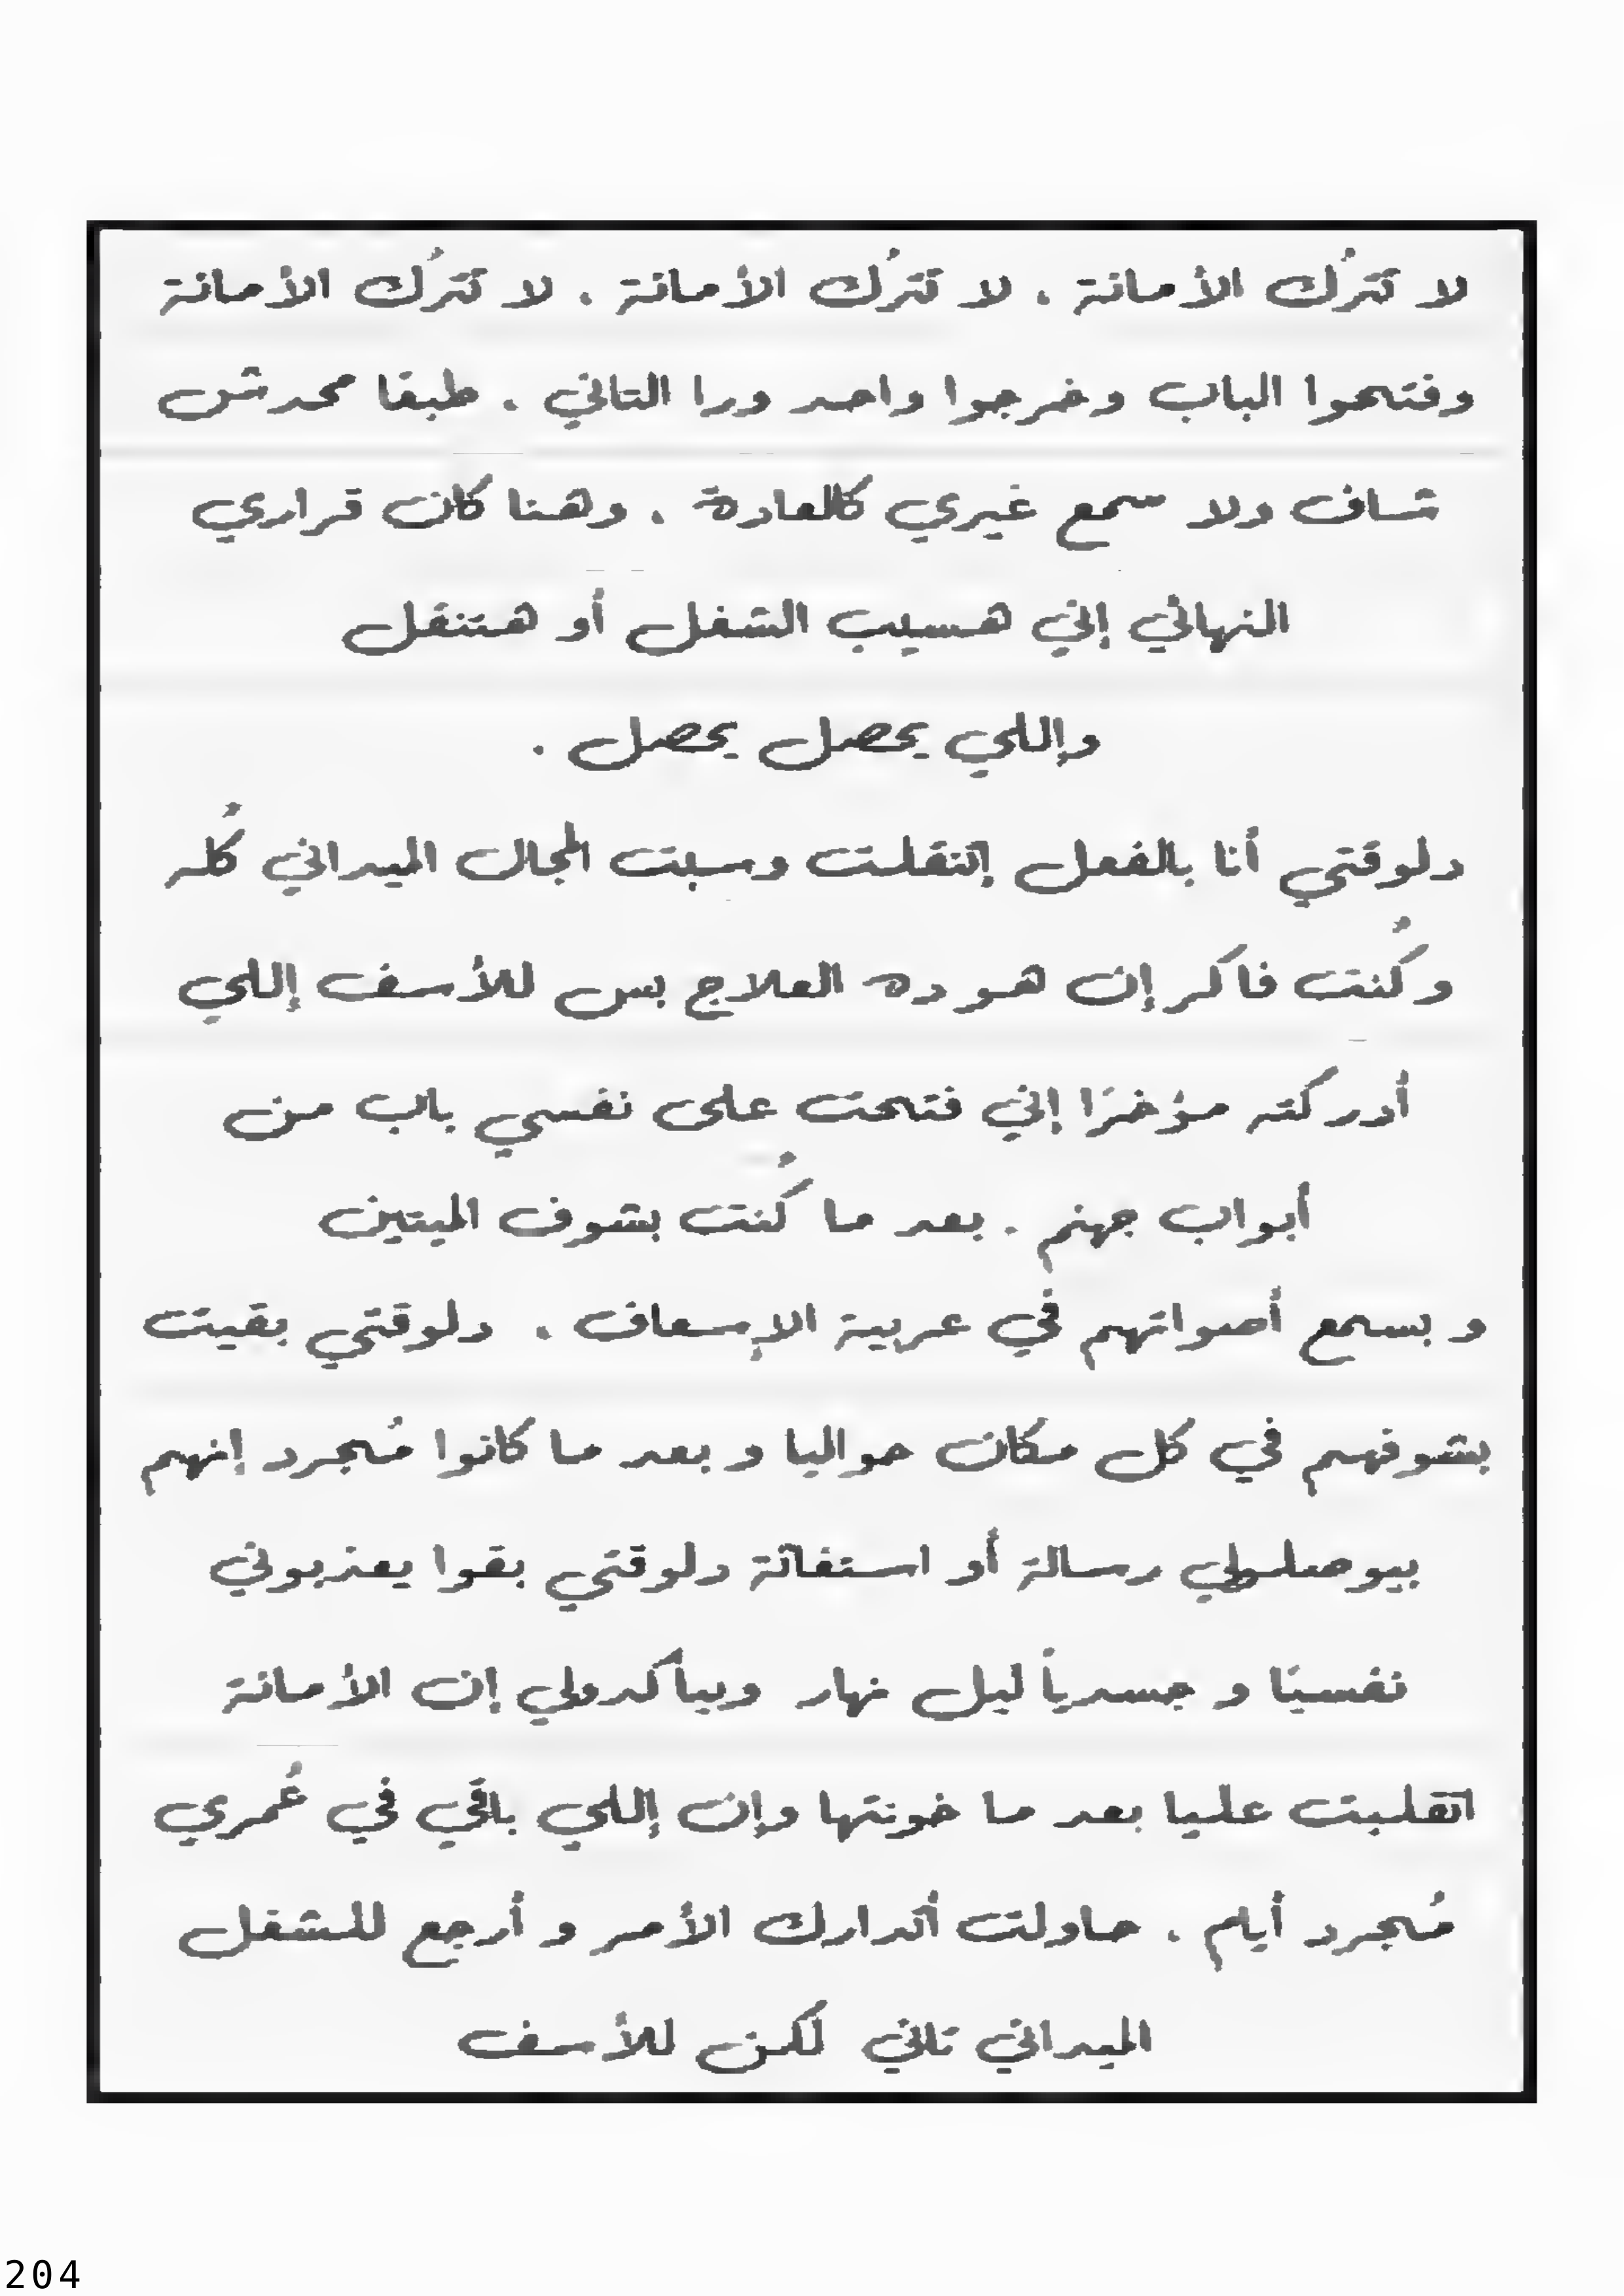 لا تترُك الأمانة . لا تترُك الأمانة . لا تترُك الأمانة
وفتحوا الباب وخرجوا واحد ورا التاني . طبعًا محدش
شاف ولا سمع غيري كالعادة . وهنا كان قراري
النهائي إني هسيب الشغل أو هتنقل
وإللي يحصل يحصل .
دلوقتي أنا بالفعل إتنقلت وسبت المجال الميداني كُله
وكُنت فاكر إن هو ده العلاج بس للأسف إللي
أدركته مؤخرًا إني فتحت على نفسي باب من
أبواب جهنم . بعد ما كُنت بشوف الميتين
و بسمع أصواتهم في عربية الإسعاف . دلوقتي بقيت
بشوفهم في كل مكان حواليا و بعد ما كانوا مُجرد إنهم
بيوصلولي رسالة أو استغاثة دلوقتي بقوا يعذبوني
نفسيًا و جسدياً ليل نهار وبيأكدولي إن الأمانة
اتقلبت عليا بعد ما خونتها وإن إللي باقي في عُمري
مُجرد أيام . حاولت أتدارك الأمر و أرجع للشغل
الميداني تاني لكن للأسف
204